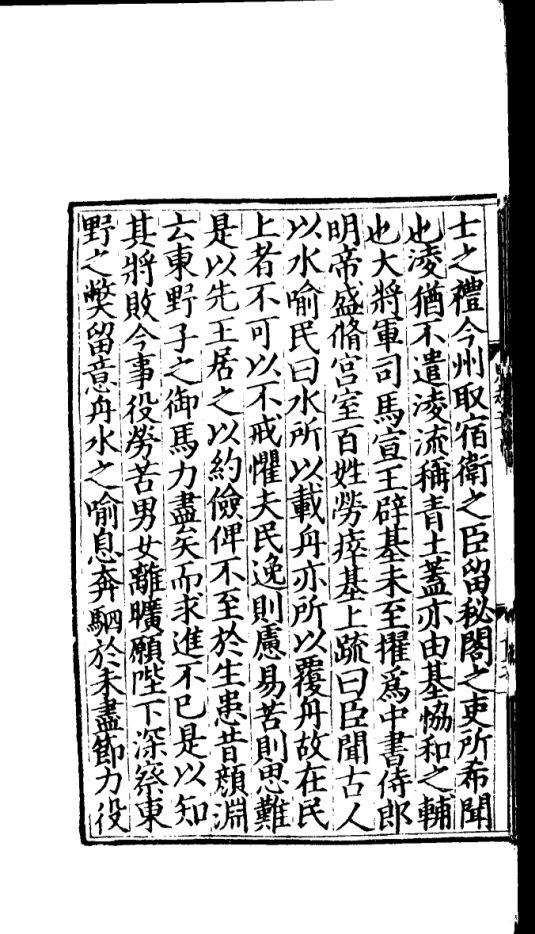 士之禮今州取宿衛之臣留秘閣之吏所希聞
也淩猶不遣淩流稱青土蓋亦由基恊和之輔
也大將軍司馬宣王辟基未至擢為中書侍郎
明帝盛脩宫室百姓勞瘁基上疏曰臣聞古人
以水喻民曰水所以載舟亦所以覆舟故在民
上者不可以不戒懼夫民逸則慮易苦則思難
是以先王居之以約儉俾不至於生患昔顔淵
云東野子之御馬力盡矣而求進不已是以知
其將敗今事役勞苦男女離曠願陛下深察東
野之獘留意舟水之喻息奔駟於未盡節力役